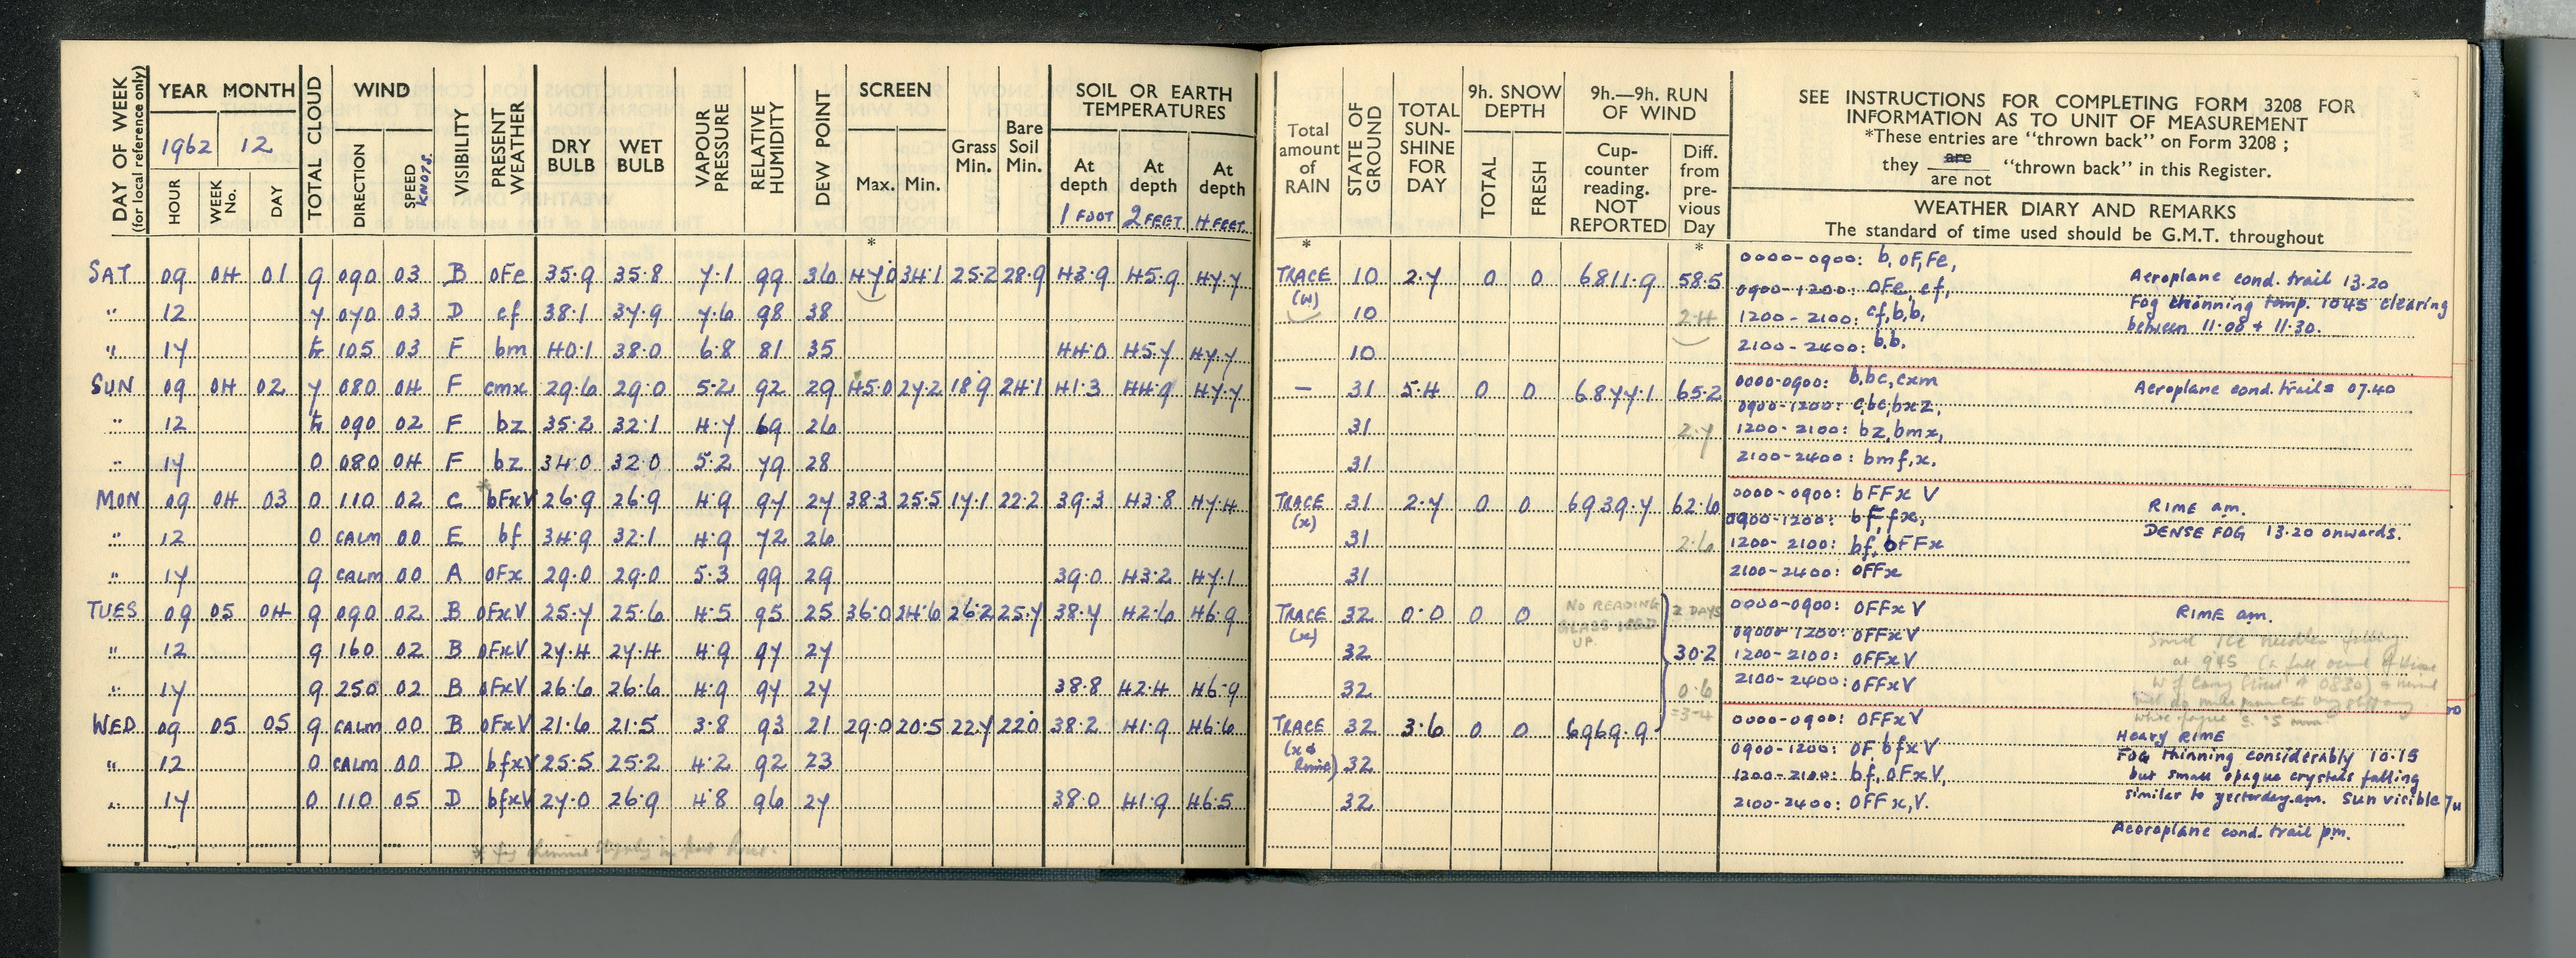 DAY OF WEEK (for local reference only)
YEAR MONTH
1962 12
HOUR WEEK No. DAY
TOTAL CLOUD
WIND
DIRECTION SPEED KNOTS.
VISIBILITY
PRESENT WEATHER
DRY BULB
WET BULB
VAPOUR PRESSURE
RELATIVE HUMIDITY
DEW POINT
SCREEN
Max. Min.
Grass Min.
Bare Soil Min.
SOIL OR EARTH TEMPERATURES
At depth 1 FOOT
At depth 2 FEET
At depth 4 FEET.
Total amount of RAIN
STATE OF GROUND
TOTAL SUN-SHINE FOR DAY
9h. SNOW DEPTH
TOTAL FRESH
9h.—9h. RUN OF WIND
Cup-counter reading. NOT REPORTED
Diff. from pre-vious Day
SEE INSTRUCTIONS FOR COMPLETING FORM 3208 FOR
INFORMATION AS TO UNIT OF MEASUREMENT
*These entries are "thrown back" on Form 3208 ;
they are / are not "thrown back" in this Register.
WEATHER DIARY AND REMARKS
The standard of time used should be G.M.T. throughout
* * *
SAT 09 04 01 9 090 03 B OFe 35.9 35.8 7.1 99 36 47.0 34.1 25.2 28.9 43.9 45.9 47.7 TRACE (W) 10 2.7 0 0 6811.9 58.5
" 12 7 070 03 D ef 38.1 37.9 7.6 98 38 10 2.4
" 17 tr 105 03 F bm 40.1 38.0 6.8 81 35 44.0 45.7 47.7 10
0000-0900: b, OF, Fe,
0900-1200: OFe, ef,
1200-2100: cf, b, b,
2100-2400: b.b.
Aeroplane cond. trail 13.20
Fog thinning temp. 1045 clearing
between 11.08 + 11.30.
SUN 09 04 02 7 080 04 F cmx 29.6 29.0 5.2 92 29 45.0 27.2 18.9 24.1 41.3 44.9 47.7 — 31 5.4 0 0 6877.1 65.2
" 12 tr 090 02 F bz 35.2 32.1 4.7 69 26 31 2.7
" 17 0 080 04 F bz 34.0 32.0 5.2 79 28 31
0000-0900: b.bc, cxm
0900-1200: c, bc, bxz,
1200-2100: bz, bmx,
2100-2400: bmf, x.
Aeroplane cond. trails 07.40
MON 09 04 03 0 110 02 C * bFxV 26.9 26.9 4.9 97 27 38.3 25.5 17.1 22.2 39.3 43.8 47.4 TRACE (x) 31 2.7 0 0 6939.7 62.6
" 12 0 CALM 00 E bf 34.9 32.1 4.9 72 26 31 2.6
" 17 9 CALM 00 A OFx 29.0 29.0 5.3 99 29 39.0 43.2 47.1 31
0000-0900: bFFx V
0900-1200: bFfx,
1200-2100: bf, bFFx
2100-2400: OFFx
RIME am.
DENSE FOG 13.20 onwards.
TUES 09 05 04 9 090 02 B OFxV 25.7 25.6 4.5 95 25 36.0 24.6 26.2 25.7 38.7 42.6 46.9 TRACE (x) 32 0.0 0 0 NO READING GLASS ICED UP. 2 DAYS
" 12 9 160 02 B OFxV 27.4 27.4 4.9 97 27 32 30.2
" 17 9 250 02 B OFxV 26.6 26.6 4.9 97 27 38.8 42.4 46.9 32 0.6
0000-0900: OFFx V
09000-1200: OFFxV
1200-2100: OFFxV
2100-2400: OFFxV
RIME am.
Small ICE needles falling
at 945
WED 09 05 05 9 CALM 00 B OFxV 21.6 21.5 3.8 93 21 29.0 20.5 22.7 22.0 38.2 41.9 46.6 TRACE (x & Rime) 32 3.6 0 0 6969.9 =3-4
" 12 0 CALM 00 D bfxV 25.5 25.2 4.2 92 23 32
" 17 0 110 05 D bfxV 27.0 26.9 4.8 96 27 38.0 41.9 46.5 32
0000-0900: OFFxV
0900-1200: OF, bfxV
1200-2100: bf, OFxV,
2100-2400: OFFx, V.
Heavy RIME
FOG thinning considerably 10.15
but small opaque crystals falling
similar to yesterday am. Sun visible
Aeoroplane cond. trail pm.
* fog thinning slightly in past hour.